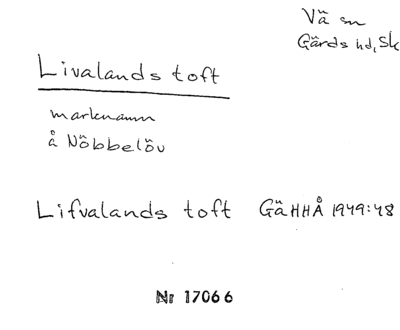 Vä sn
Gärds hd, Sk
Livalands toft
marknamn
å Nöbbelöv
Lifvalands toft GäHHÅ 1949:48
Nr 17066